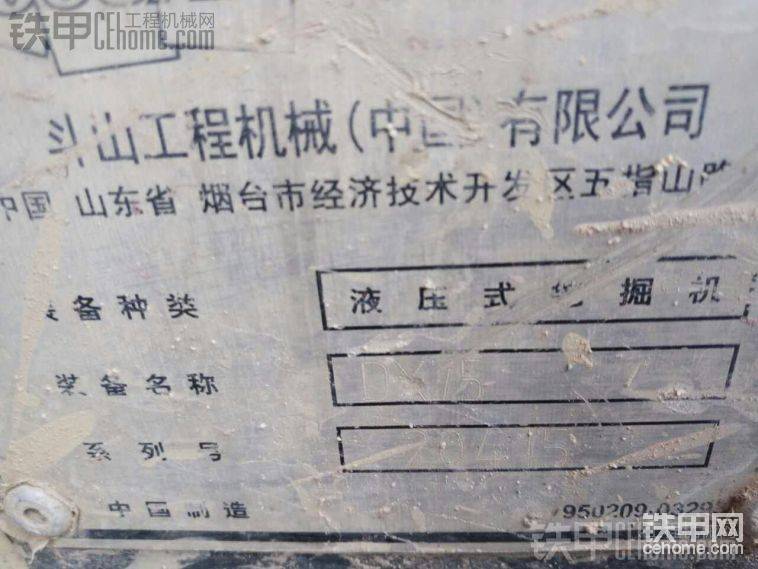 铁甲工程机械网
CEhome.com
斗山工程机械(中国)有限公司
中国 山东省 烟台市经济技术开发区五指山路
装备种类 液压式挖掘机
装备名称 DX15
系列号
中国制造 950209-0329
铁甲网
cehome.com